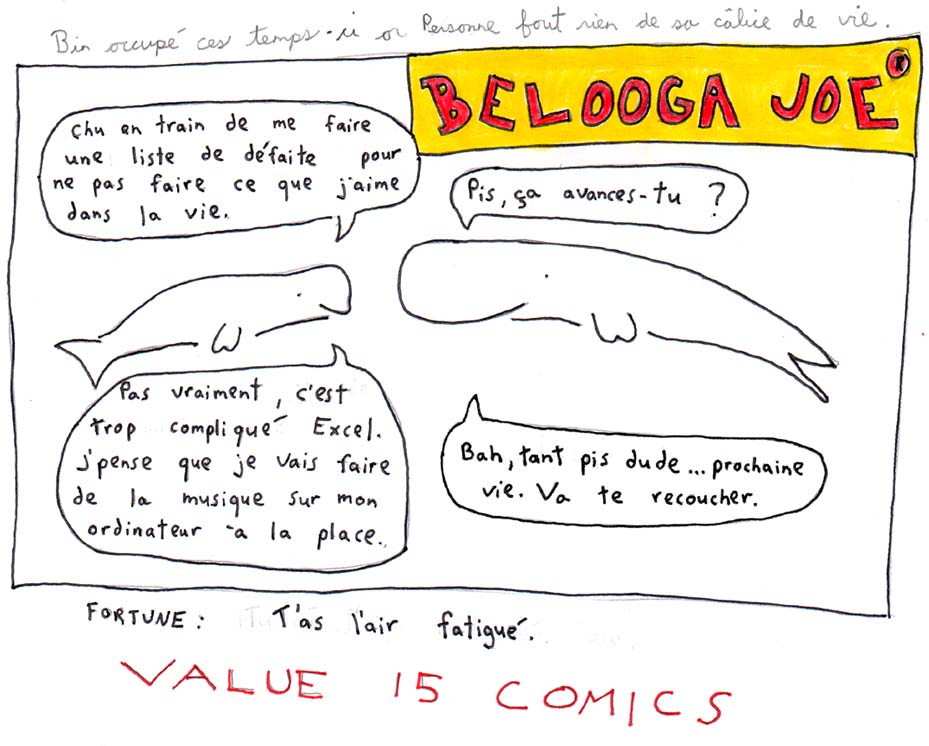 Bin occupé ces temps-ci or Personne fout rien de sa câlice de vie.
BELOOGA JOE
R
Chu en train de me faire
une liste de défaite pour
ne pas faire ce que j'aime
dans la vie.
Pis, ça avances-tu ?
Pas vraiment, c'est
trop compliqué Excel.
J'pense que je vais faire
de la musique sur mon
ordinateur à la place.
Bah, tant pis dude... prochaine
vie. Va te recoucher.
FORTUNE : T'as l'air fatigué.
VALUE 15 COMICS